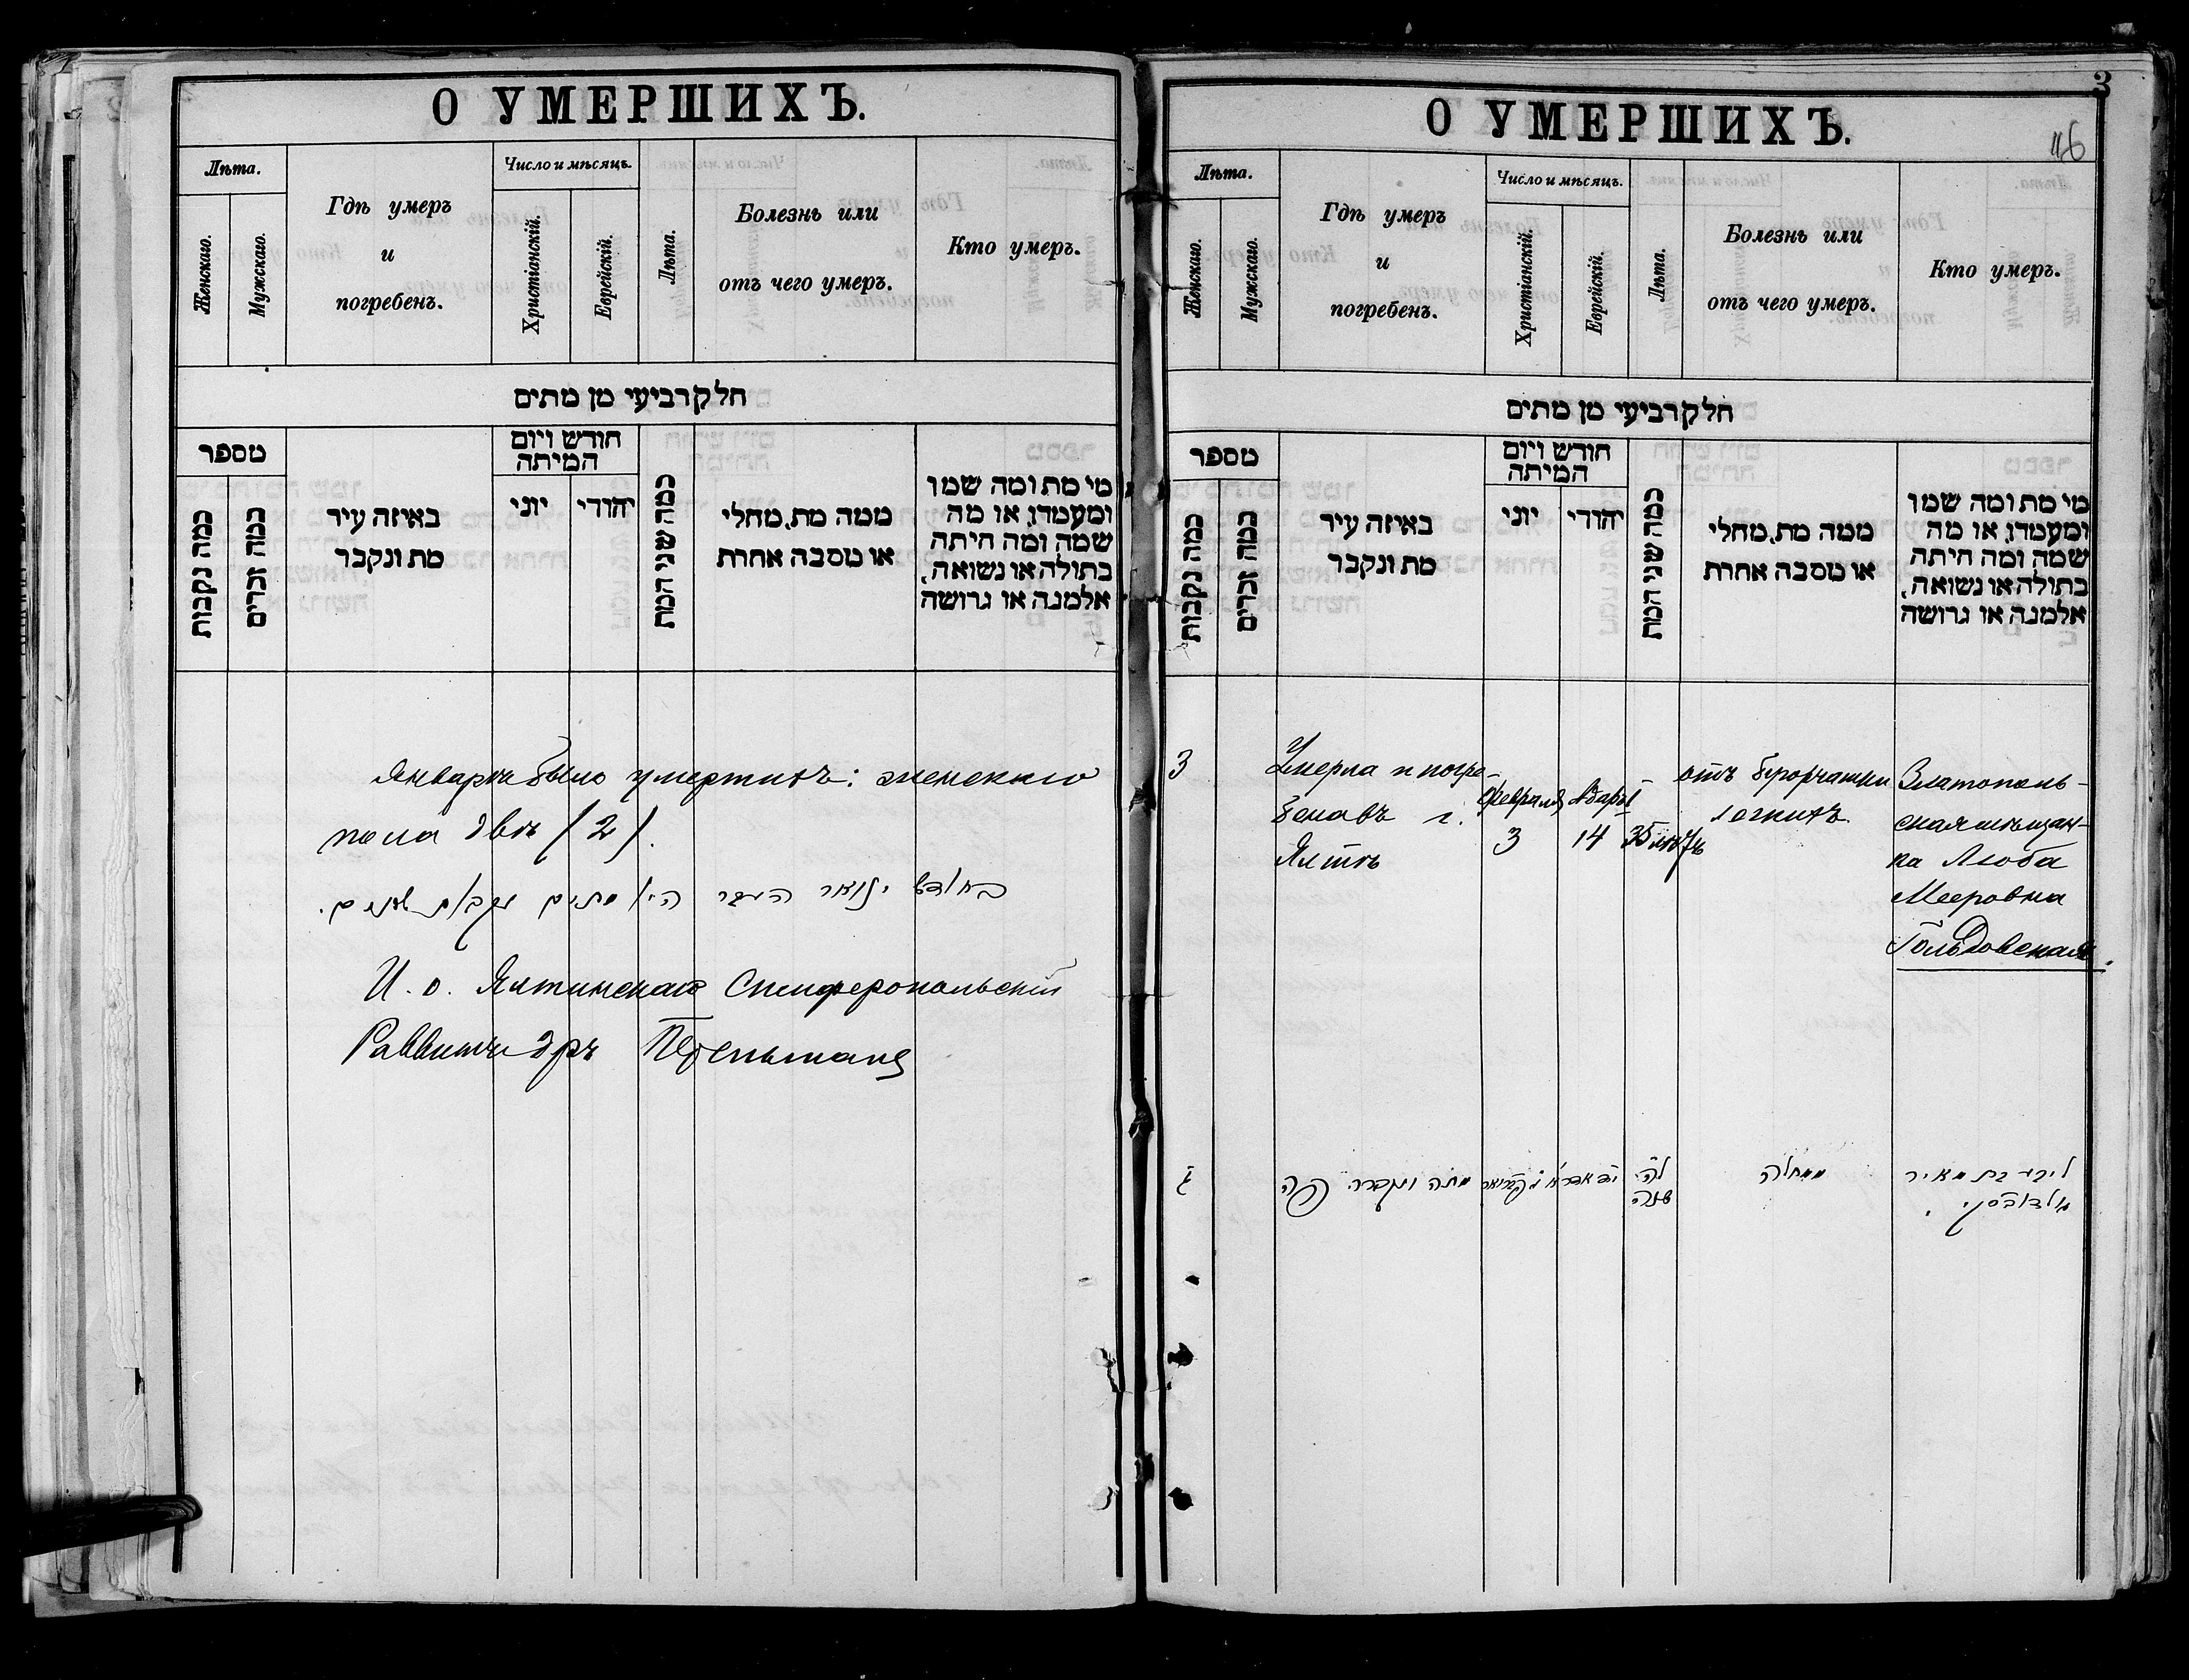 О УМЕРШИХЪ.
Лѣта.
Женскаго.
Мужскаго.
Гдѣ умеръ
и
погребенъ.
Число и мѣсяцъ.
Христіанскій.
Еврейскій.
Лѣта.
Болезнь или
отъ чего умеръ.
Кто умеръ.
חלק רביעי מן מתים
מספר
כמה נקבות
כמה זכרים
באיזה עיר
מת ונקבר
חודש ויום
המיתה
יוני
יהודי
כמה שני המת
ממה מת, מחלי
או מסבה אחרת
מי מת ומה שמו
ומעמדו, או מה
שמה ומה היתה
בתולה או נשואה,
אלמנה או גרושה
Января было умершихъ: женскаго
пола двѣ (2).
בחודש ינואר העבר היו מתים נקבות שתים.
И. о. Ялтинскаго Симферопольскій
Раввинъ дръ
3
46
О УМЕРШИХЪ.
Лѣта.
Женскаго.
Мужскаго.
Гдѣ умеръ
и
погребенъ.
Число и мѣсяцъ.
Христіанскій.
Еврейскій.
Лѣта.
Болезнь или
отъ чего умеръ.
Кто умеръ.
חלק רביעי מן מתים
מספר
כמה נקבות
כמה זכרים
באיזה עיר
מת ונקבר
חודש ויום
המיתה
יוני
יהודי
כמה שני המת
ממה מת, מחלי
או מסבה אחרת
מי מת ומה שמו
ומעמדו, או מה
שמה ומה היתה
בתולה או נשואה,
אלמנה או גרושה
3
Умерла и погре-
бена въ г.
Ялтѣ
Февраля
3
Адаръ I
14
35 лѣтъ
отъ бугорчатки
легкихъ
Златополь-
ская мѣщан-
ка Люба
Мееровна
Гольдовская.
ג
מתה ונקברה פה
ג פברואר
יד אדר א
לה
שנה
ממחלה
ליבא בת מאיר
גולדובסקי.